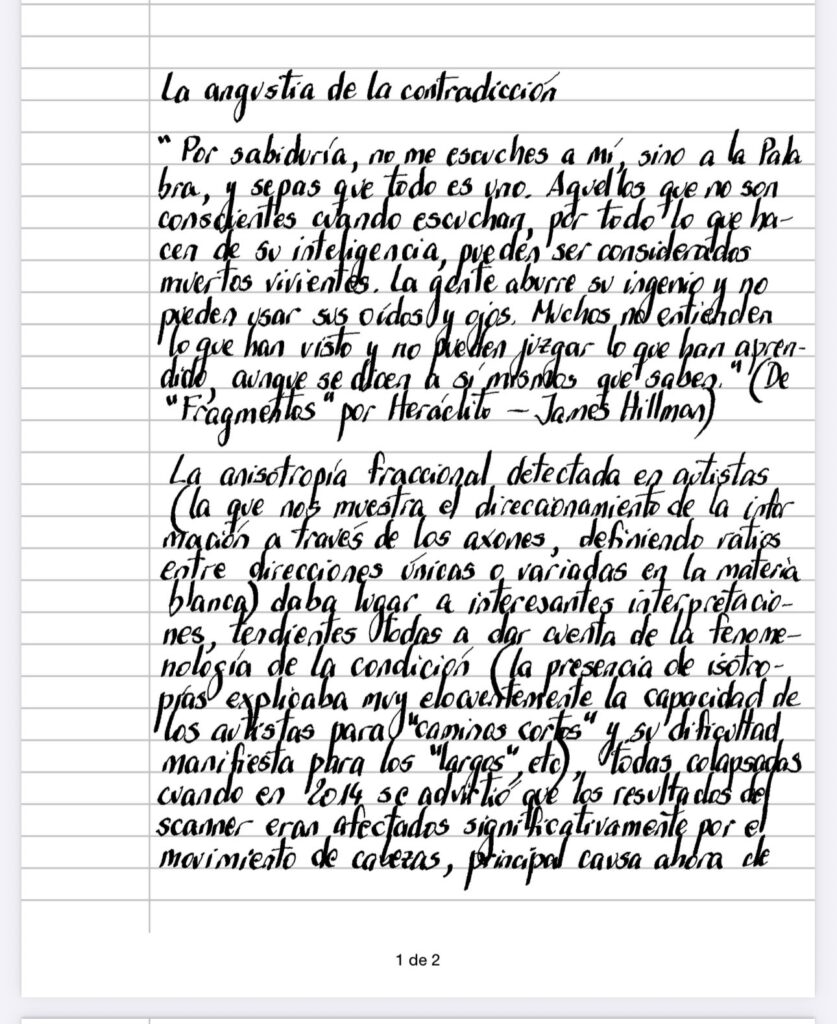 La angustia de la contradicción
" Por sabiduría, no me escuches a mí, sino a la Pala
bra, y sepas que todo es uno. Aquellos que no son
conscientes cuando escuchan, por todo lo que ha-
cen de su inteligencia, pueden ser considerados
muertos vivientes. La gente aburre su ingenio y no
pueden usar sus oídos y ojos. Muchos no entienden
lo que han visto y no pueden juzgar lo que han apren-
dido, aunque se dicen a sí mismos que saben." (De
"Fragmentos" por Heráclito – James Hillman)
La anisotropía fraccional detectada en autistas
(la que nos muestra el direccionamiento de la infor
mación a través de los axones, definiendo ratios
entre direcciones únicas o variadas en la materia
blanca) daba lugar a interesantes interpretacio-
nes, tendientes todas a dar cuenta de la fenome-
nología de la condición (la presencia de isotro-
pías explicaba muy elocuentemente la capacidad de
los autistas para "caminos cortos" y su dificultad
manifiesta para los "largos", etc), todas colapsadas
cuando en 2014 se advirtió que los resultados del
scanner eran afectados significativamente por el
movimiento de cabezas, principal causa ahora de
1 de 2